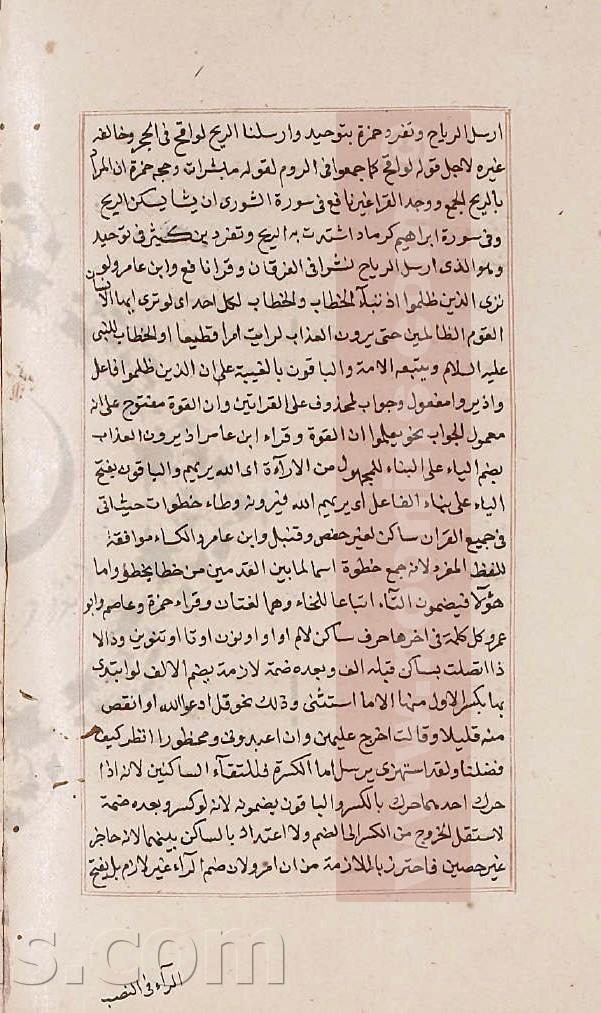 ارسل الرياح وتفرد حمزة بتوحيد وارسلنا الريح لواقح في الحجر وخالفه
غيره لاجل قوله لواقح كما جمعوا في الروم لقوله مبشرات وحجة حمزة ان المراد
بالريح الجمع ووحد القراء غير نافع في سورة الشورى ان يشا يسكن الريح
وفي سورة ابراهيم كرماد اشتدت به الريح وتفرد بن كثير في توحيد
وهو الذي ارسل الرياح نشرا في الفرقان وقرا نافع وابن عامر ولو
ترى الذين ظلموا اذ نبأه الخطاب والخطاب لكل احد اي لو ترى ايها الانسان
القوم الظالمين حتى يرون العذاب لرايت امرا فظيعا او الخطاب للنبي
عليه السلام ويتبعه الامة والباقون بالغيبة على ان الذين ظلموا فاعل
واذ يروا مفعول وجواب لو محذوف على القراتين وان القوة مفتوح على انه
معمول الجواب نحو يعلموا ان القوة وقراء ابن عامر اذ يرون العذاب
بضم الياء على البناء للمجهول من الارآءة اي الله يريهم والباقون بفتح
الياء على بناء الفاعل اي يريهم الله فيرونه وطاء خطوات حيث اتى
في جميع القران ساكن لغير حفص وقنبل وابن عامر والكساء موافقة
للفظ المفرد لانه جمع خطوة اسم لما بين القدمين من خطا يخطؤ واما
هؤلآ فيضمون الثآء اتباعا للخاء وهما لغتان وقراء حمزة وعاصم وابو
عمرو كل كلمة في اخرها حرف ساكن لام او واو او نون او تا او تنوين ودالا
ذا اتصلت بساكن قبله الف وبعده ضمة لازمة بضم الالف لو ابتدى
بها بكسر الاول منها الا ما استثنى وذلك نحو قل ادعوا الله او انقص
منه قليلا وقالت اخرج عليهن وان اعبدوني ومحظورا انظر كيف
فضلنا ولقد استهزى برسل اما الكسرة فلالتقآء الساكنين لانه اذا
حرك احدهما حرك بالكسر والباقون يضمونه لانه لو كسر وبعده ضمة
لاستثقل الخروج من الكسر الى الضم ولا اعتداد بالساكن بينهما لانه حاجز
غير حصين فاحترز بالملازمة من ان امرو لان ضم الرآء غير لازم بل يفتح
الرآء في النصب
s.com